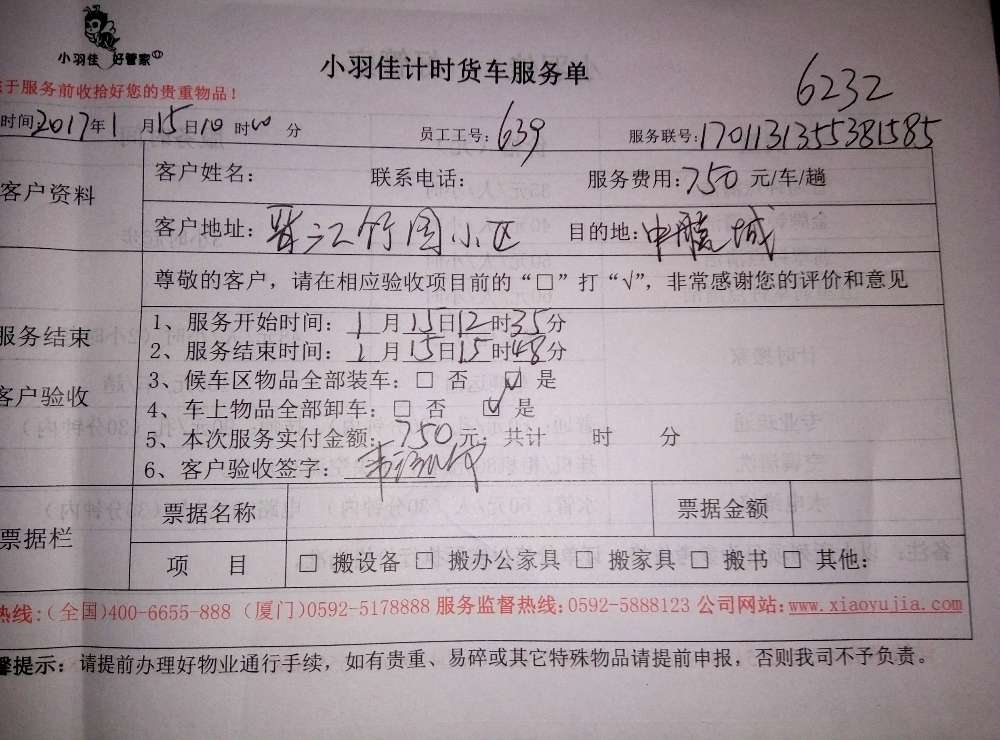 小羽佳 好管家
小羽佳计时货车服务单
6232
于服务前收拾好您的贵重物品！
时间2017年1月15日10时00分 员工工号：639 服务联号：1701131355381585
客户资料
客户姓名： 联系电话： 服务费用：750元/车/趟
客户地址：晋江竹园小区 目的地：中骏城
尊敬的客户，请在相应验收项目前的“□”打“√”，非常感谢您的评价和意见
服务结束
客户验收
1、服务开始时间：1月15日12时35分
2、服务结束时间：1月15日15时48分
3、候车区物品全部装车：□ 否 ☑ 是
4、车上物品全部卸车：□ 否 ☑ 是
5、本次服务实付金额：750元；共计 时 分
6、客户验收签字：
票据栏
票据名称 票据金额
项 目 □ 搬设备 □ 搬办公家具 □ 搬家具 □ 搬书 □ 其他：
热线：(全国)400-6655-888 (厦门)0592-5178888 服务监督热线：0592-5888123 公司网站：www.xiaoyujia.com
馨提示：请提前办理好物业通行手续，如有贵重、易碎或其它特殊物品请提前申报，否则我司不予负责。